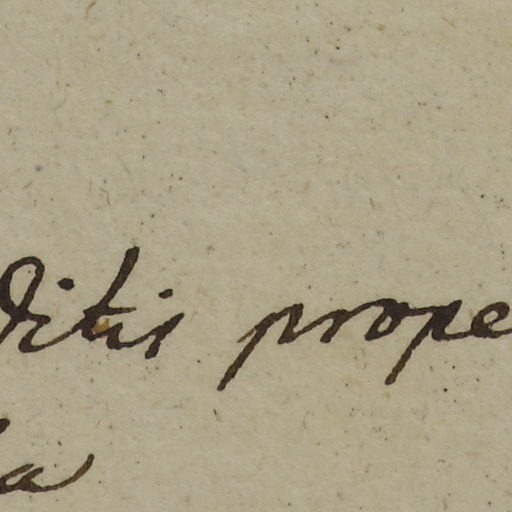 ditis prope
a